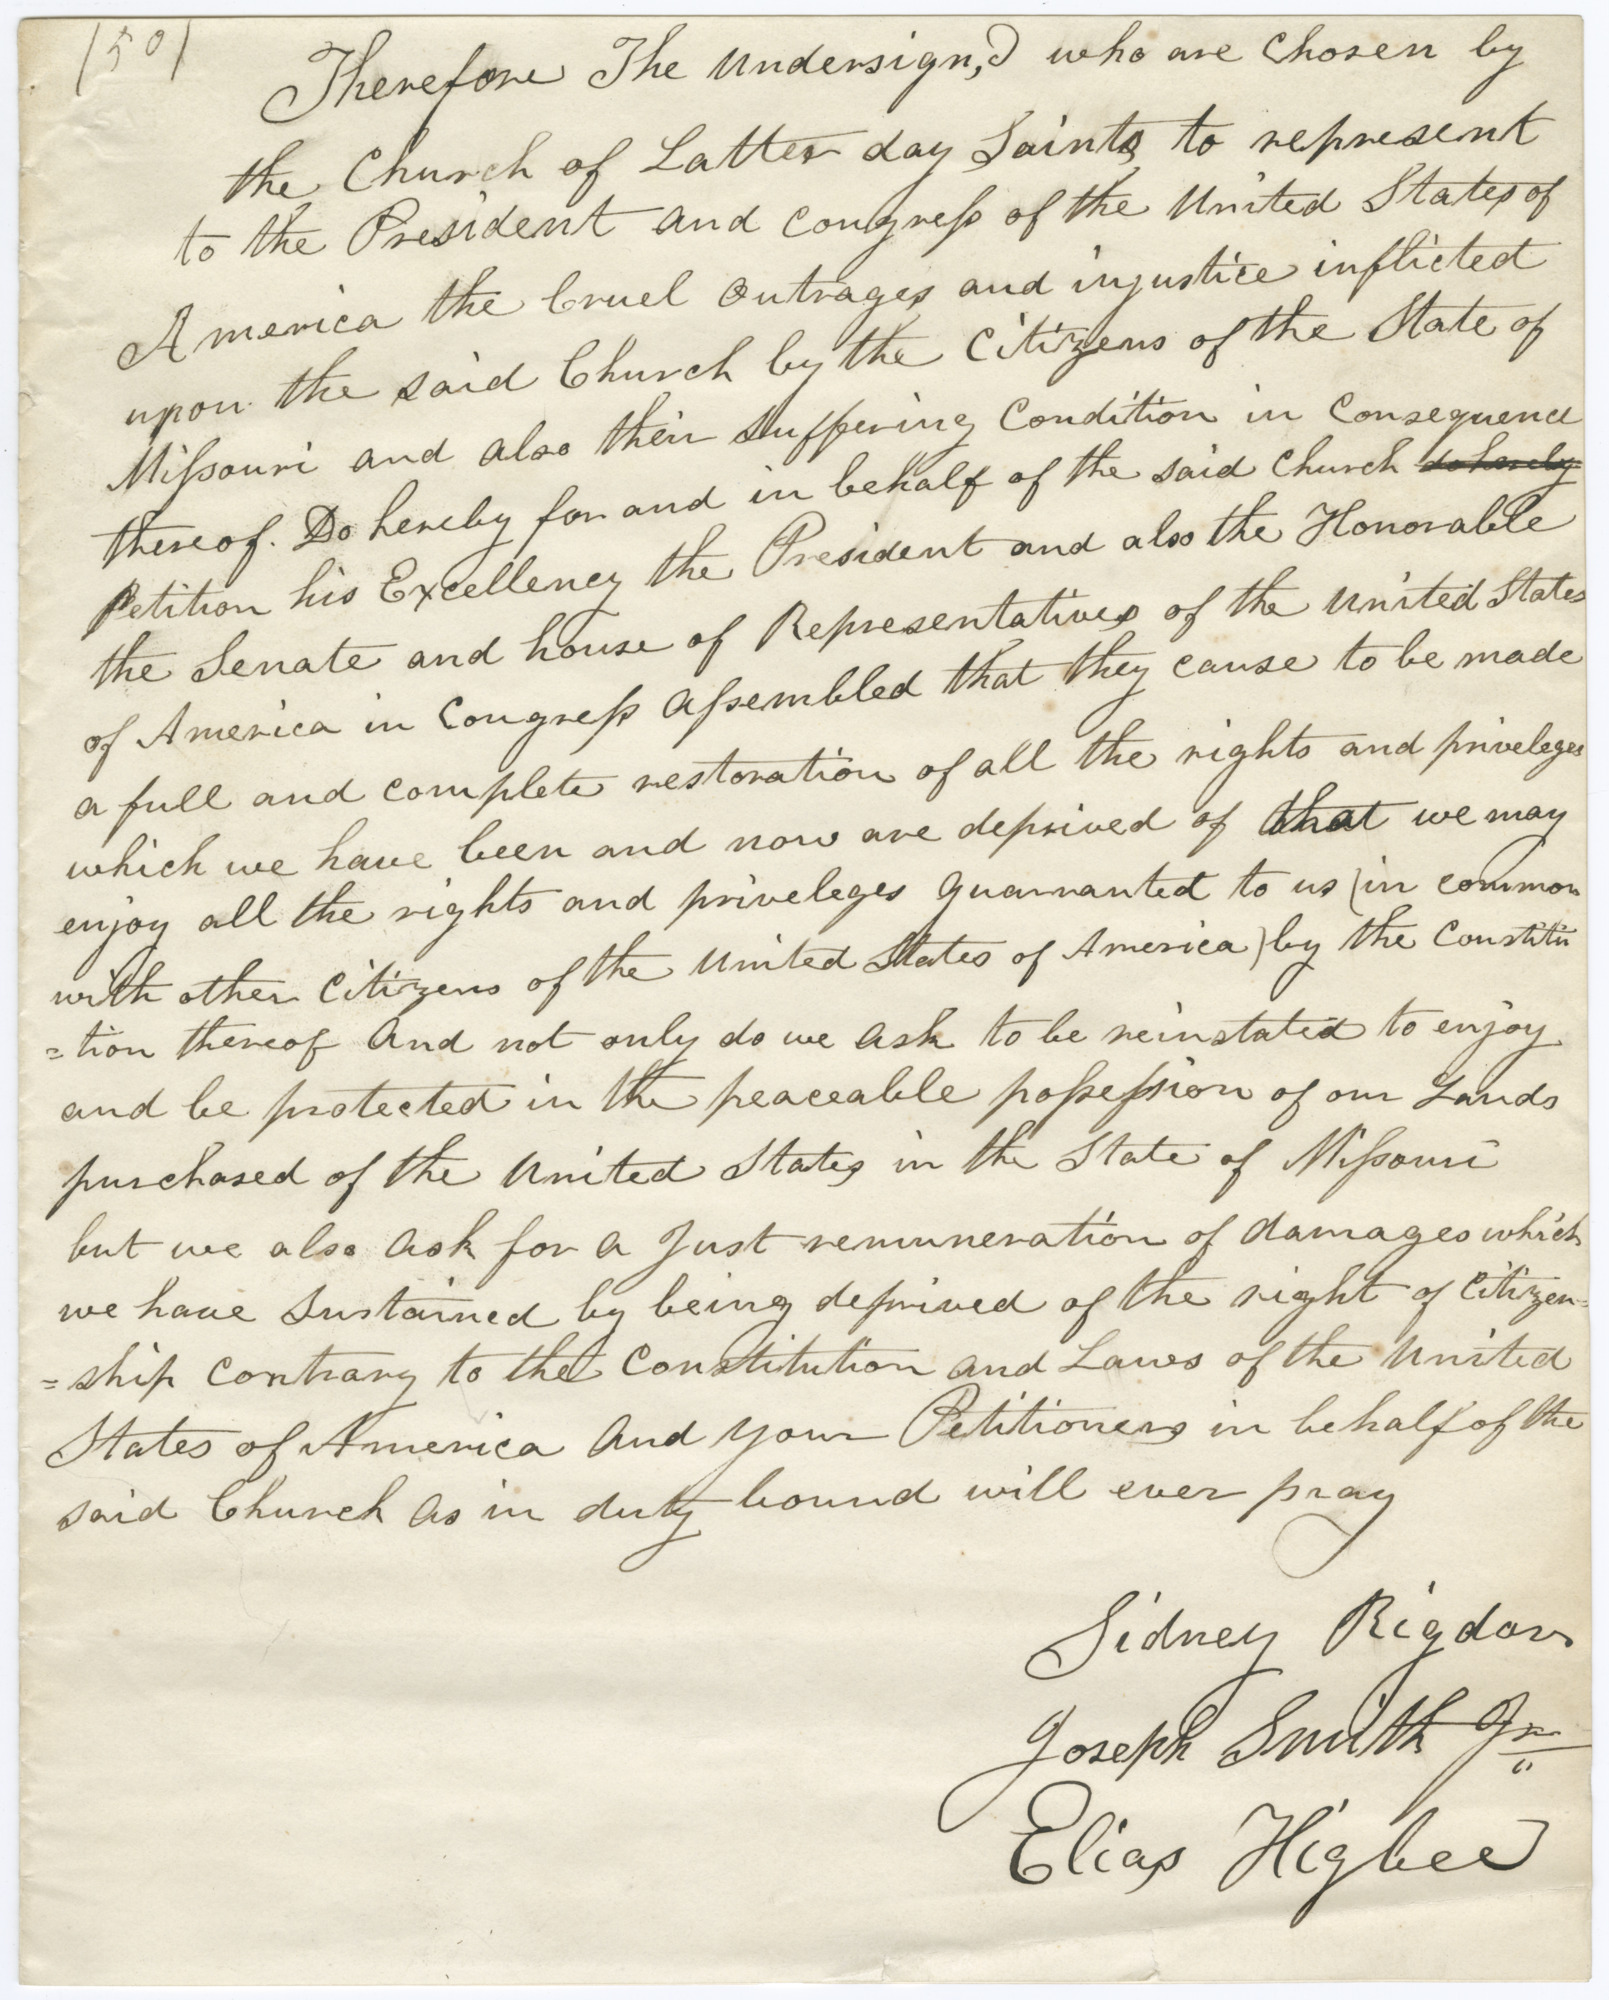 (50)
Therefore The Undersign,d who are Chosen by
the Church of Latter day Saints to represent
to the President and Congress of the United States of
America the Cruel Outrages and injustice inflicted
upon the said Church by the Citizens of the State of
Missouri and also their Suffering Condition in Consequence
thereof. Do hereby for and in behalf of the said Church do hereby
Petition his Excellency the President and also the Honorable
the Senate and house of Representatives of the United States
of America in Congress Assembled that they cause to be made
a full and complete restoration of all the rights and priveleges
which we have been and now are deprived of that we may
enjoy all the rights and priveleges guarranted to us (in common
with other Citizens of the United States of America) by the Constitu
=tion thereof And not only do we ask to be reinstated to enjoy
and be protected in the peaceable possession of our Lands
purchased of the United States in the State of Missouri
but we also Ask for a Just remuneration of damages which
we have Sustained by being deprived of the right of Citizen=
=ship Contrary to the Constitution and Laws of the United
States of America And your Petitioners in behalf of the
said Church as in duty bound will ever pray
Sidney Rigdon
Joseph Smith Jr
Elias Higbee